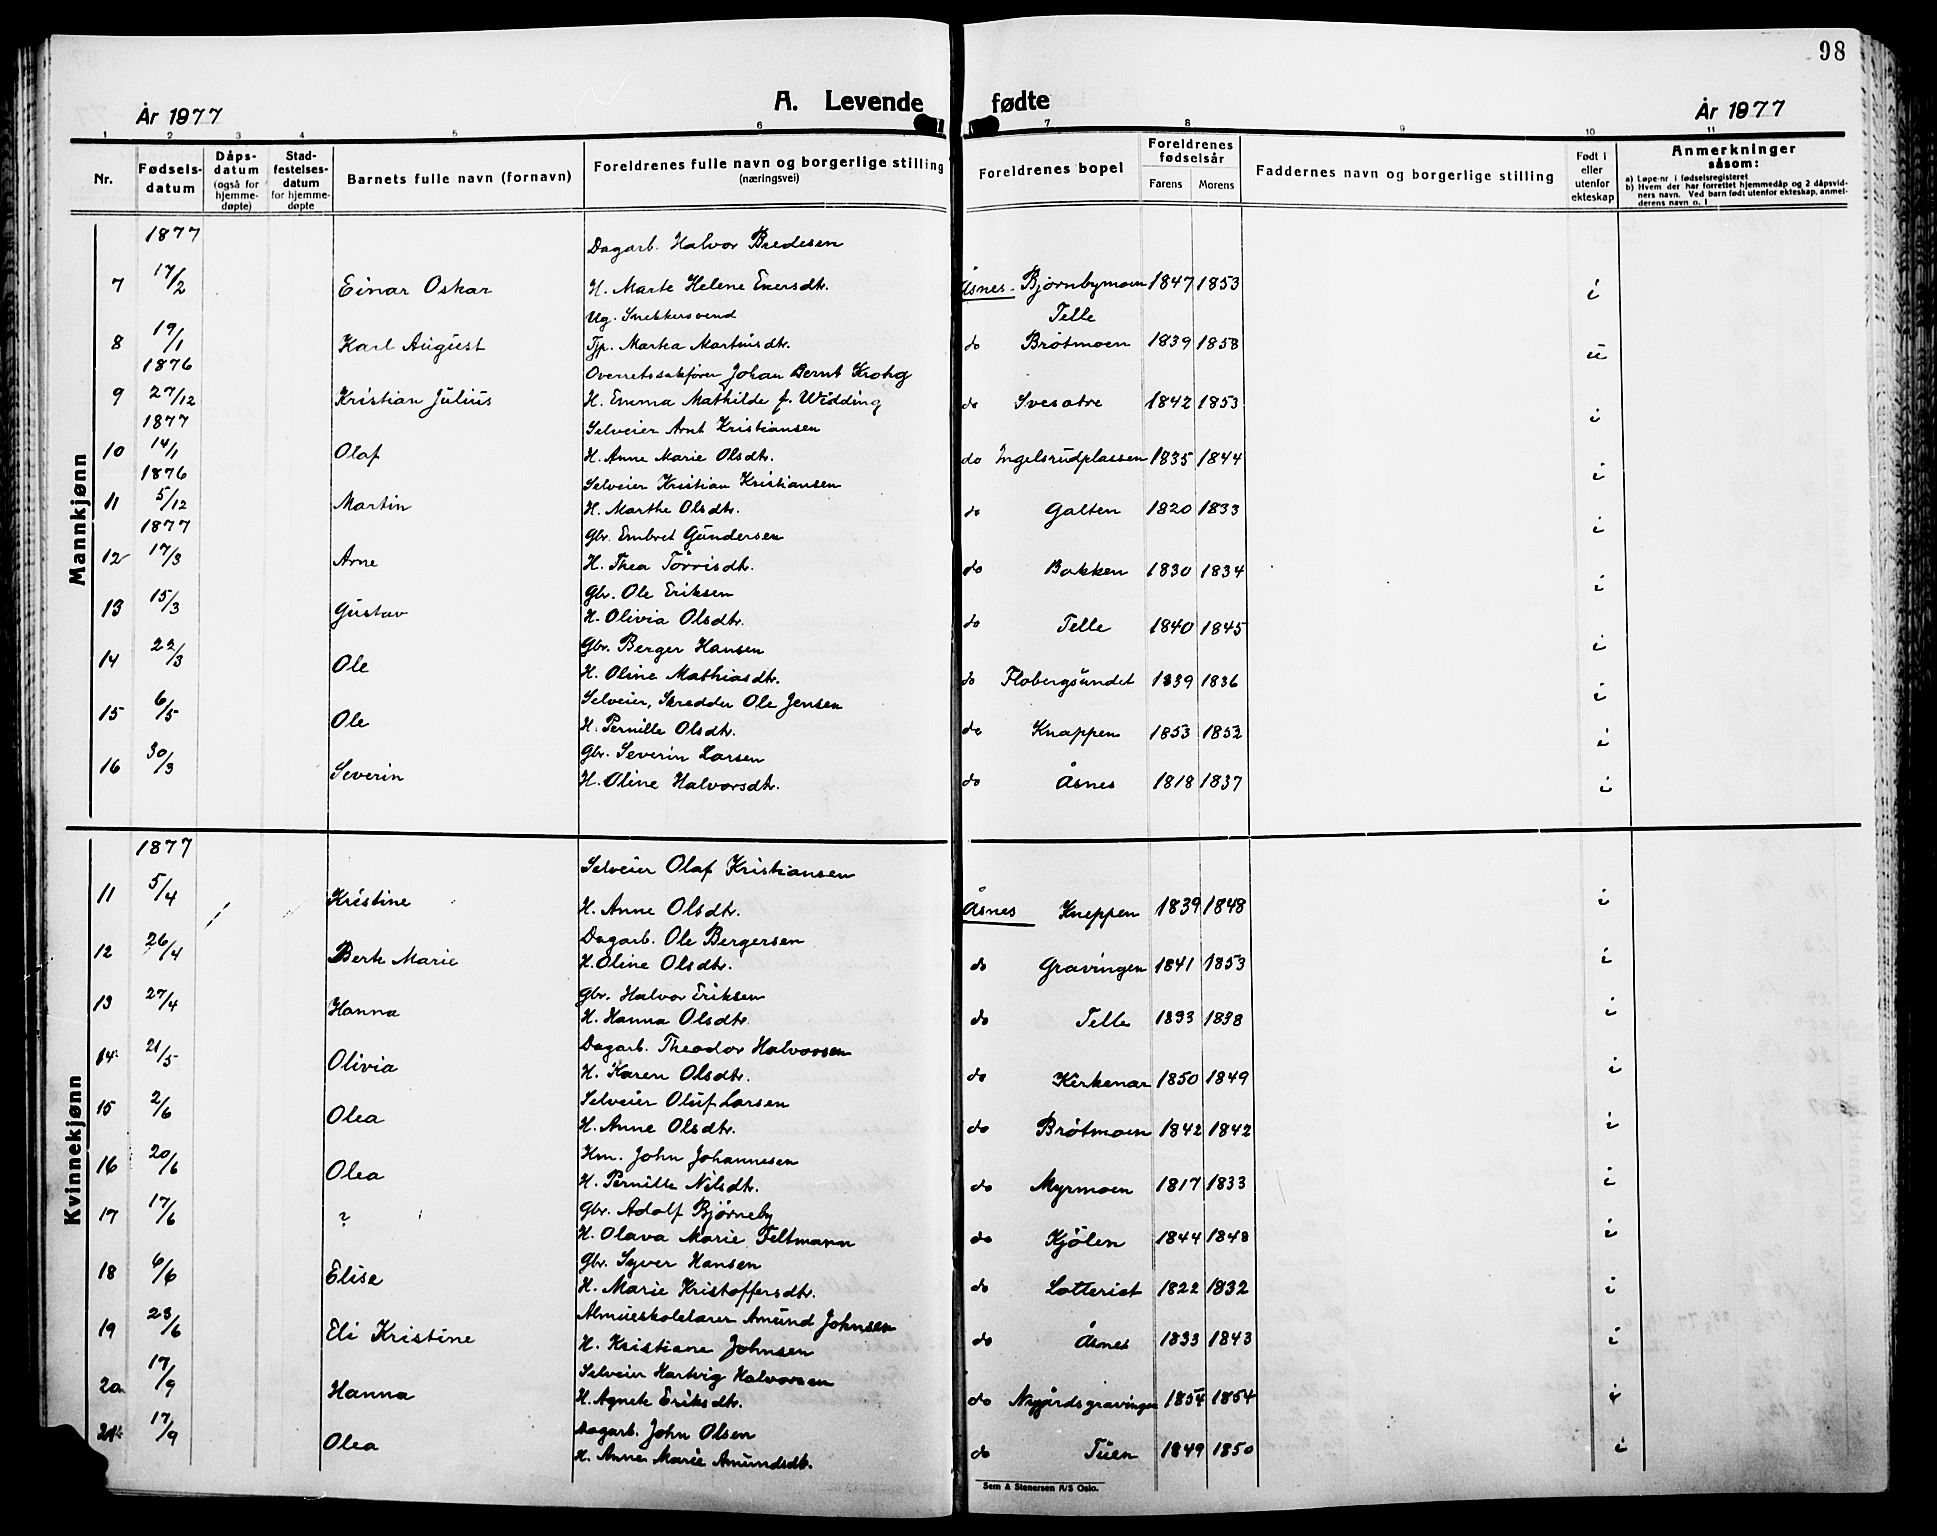 98
År 1877
A. Levende
fødte
År 1877
1 2 3 4 5 6 7 8 9 10 11
Nr.
Fødsels-
datum
Dåps-
datum
(også for
hjemme-
døpte)
Stad-
festelses-
datum
for hjemme-
døpte
Barnets fulle navn (fornavn)
Foreldrenes fulle navn og borgerlige stilling
(næringsvei)
Foreldrenes bopel
Foreldrenes
fødselsår
Farens Morens
Faddernes navn og borgerlige stilling
Født i
eller
utenfor
ekteskap
Anmerkninger
såsom:
a) Løpe-nr i fødselsregisteret
b) Hvem der har forrettet hjemmedåp og 2 dåpsvid-
ners navn. Ved barn født utenfor ekteskap, anmel-
derens navn o. l
Mannkjønn
1877
Dagarb. Halvor Bredesen
7 17/2 Einar Oskar H. Marte Helene Eversdtr. Åsnes - Bjørnbymoen 1847 1853 i
Ug. Snekkersvend Telle
8 19/1 Karl August Tjp. Martea Martinsdtr. do Brøtmoen 1839 1853 u
1876 Overretssakfører Johan Bernt Krohg
9 27/12 Kristian Julius H. Emma Mathilde f. Widding do Svesætre 1842 1853 i
1877 Selveier Arnt Kristiansen
10 14/1 Olaf H. Anne Marie Olsdtr. do Ingelsrudplassen 1835 1844 i
1876 Selveier Kristian Kristiansen
11 5/12 Martin H. Marthe Olsdtr. do Galten 1820 1833 i
1877 Gbr. Embret Gundersen
12 17/3 Arne H. Thea Törrisdtr. do Bakken 1830 1834 i
Gbr. Ole Eriksen
13 15/3 Gustav H. Olivia Olsdtr. do Telle 1840 1845 i
Gbr. Berger Hansen
14 22/3 Ole H. Oline Mathiasdtr. do Flobergsundet 1839 1836 i
Selveier, Skredder Ole Jensen
15 6/5 Ole H. Pernille Olsdtr. do Knappen 1853 1852 i
Gbr. Severin Larsen
16 30/3 Severin H. Oline Halvorsdtr. do Åsnes 1818 1837 i
Kvinnekjønn
1877
Selveier Olaf Kristiansen
11 5/4 Kristine H. Anne Olsdtr. Åsnes Kneppen 1839 1848 i
Dagarb. Ole Bergersen
12 26/4 Berte Marie H. Oline Olsdtr. do Gravingen 1841 1853 i
Gbr. Halvor Eriksen
13 27/4 Hanna H. Hanna Olsdtr. do Telle 1833 1838 i
Dagarb. Theodor Halvorsen
14 21/5 Olivia H. Karen Olsdtr. do Kirkenær 1850 1849 i
Selveier Oluf Larsen
15 2/6 Olea H. Anne Olsdtr. do Brøtmoen 1842 1842 i
Hm. John Johannesen
16 20/6 Olea H. Pernille Nilsdtr. do Myrmoen 1817 1833 i
Gbr. Adolf Bjørneby
17 17/6 ? H. Olava Marie Feltmann do Kjölen 1844 1848 i
Gbr. Syver Hansen
18 6/6 Elise H. Marie Kristoffersdtr. do Lotteriet 1822 1832 i
Almueskolelærer Amund Johnsen
19 23/6 Eli Kristine H. Kristiane Johnsen do Åsnes 1833 1843 i
Selveier Hartvig Halvorsen
20 17/9 Hanna H. Agnete Eriksdtr. do Nygårdsgravingen 1854 1854 i
Dagarb. John Olsen
21 17/9 Olea H. Anne Marie Amundsdtr. do Tuen 1849 1850 i
Sem & Stenersen A/S Oslo.